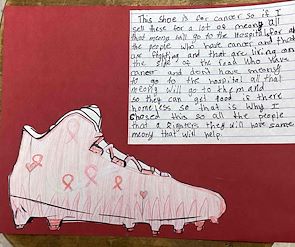 This shoe is for cancer so if I
sell these for a lot of meony all
that meony will go to the Hospital for all
the people who have cancer and that
are fighting and that are living on
the side of the road who have
cancer and dont have meony
to go to the hospital all that
meony will go to them and
so they can get food is there
homeless so that is why I
chosed this so all the people
that a fighters they will have some
meony that will help.